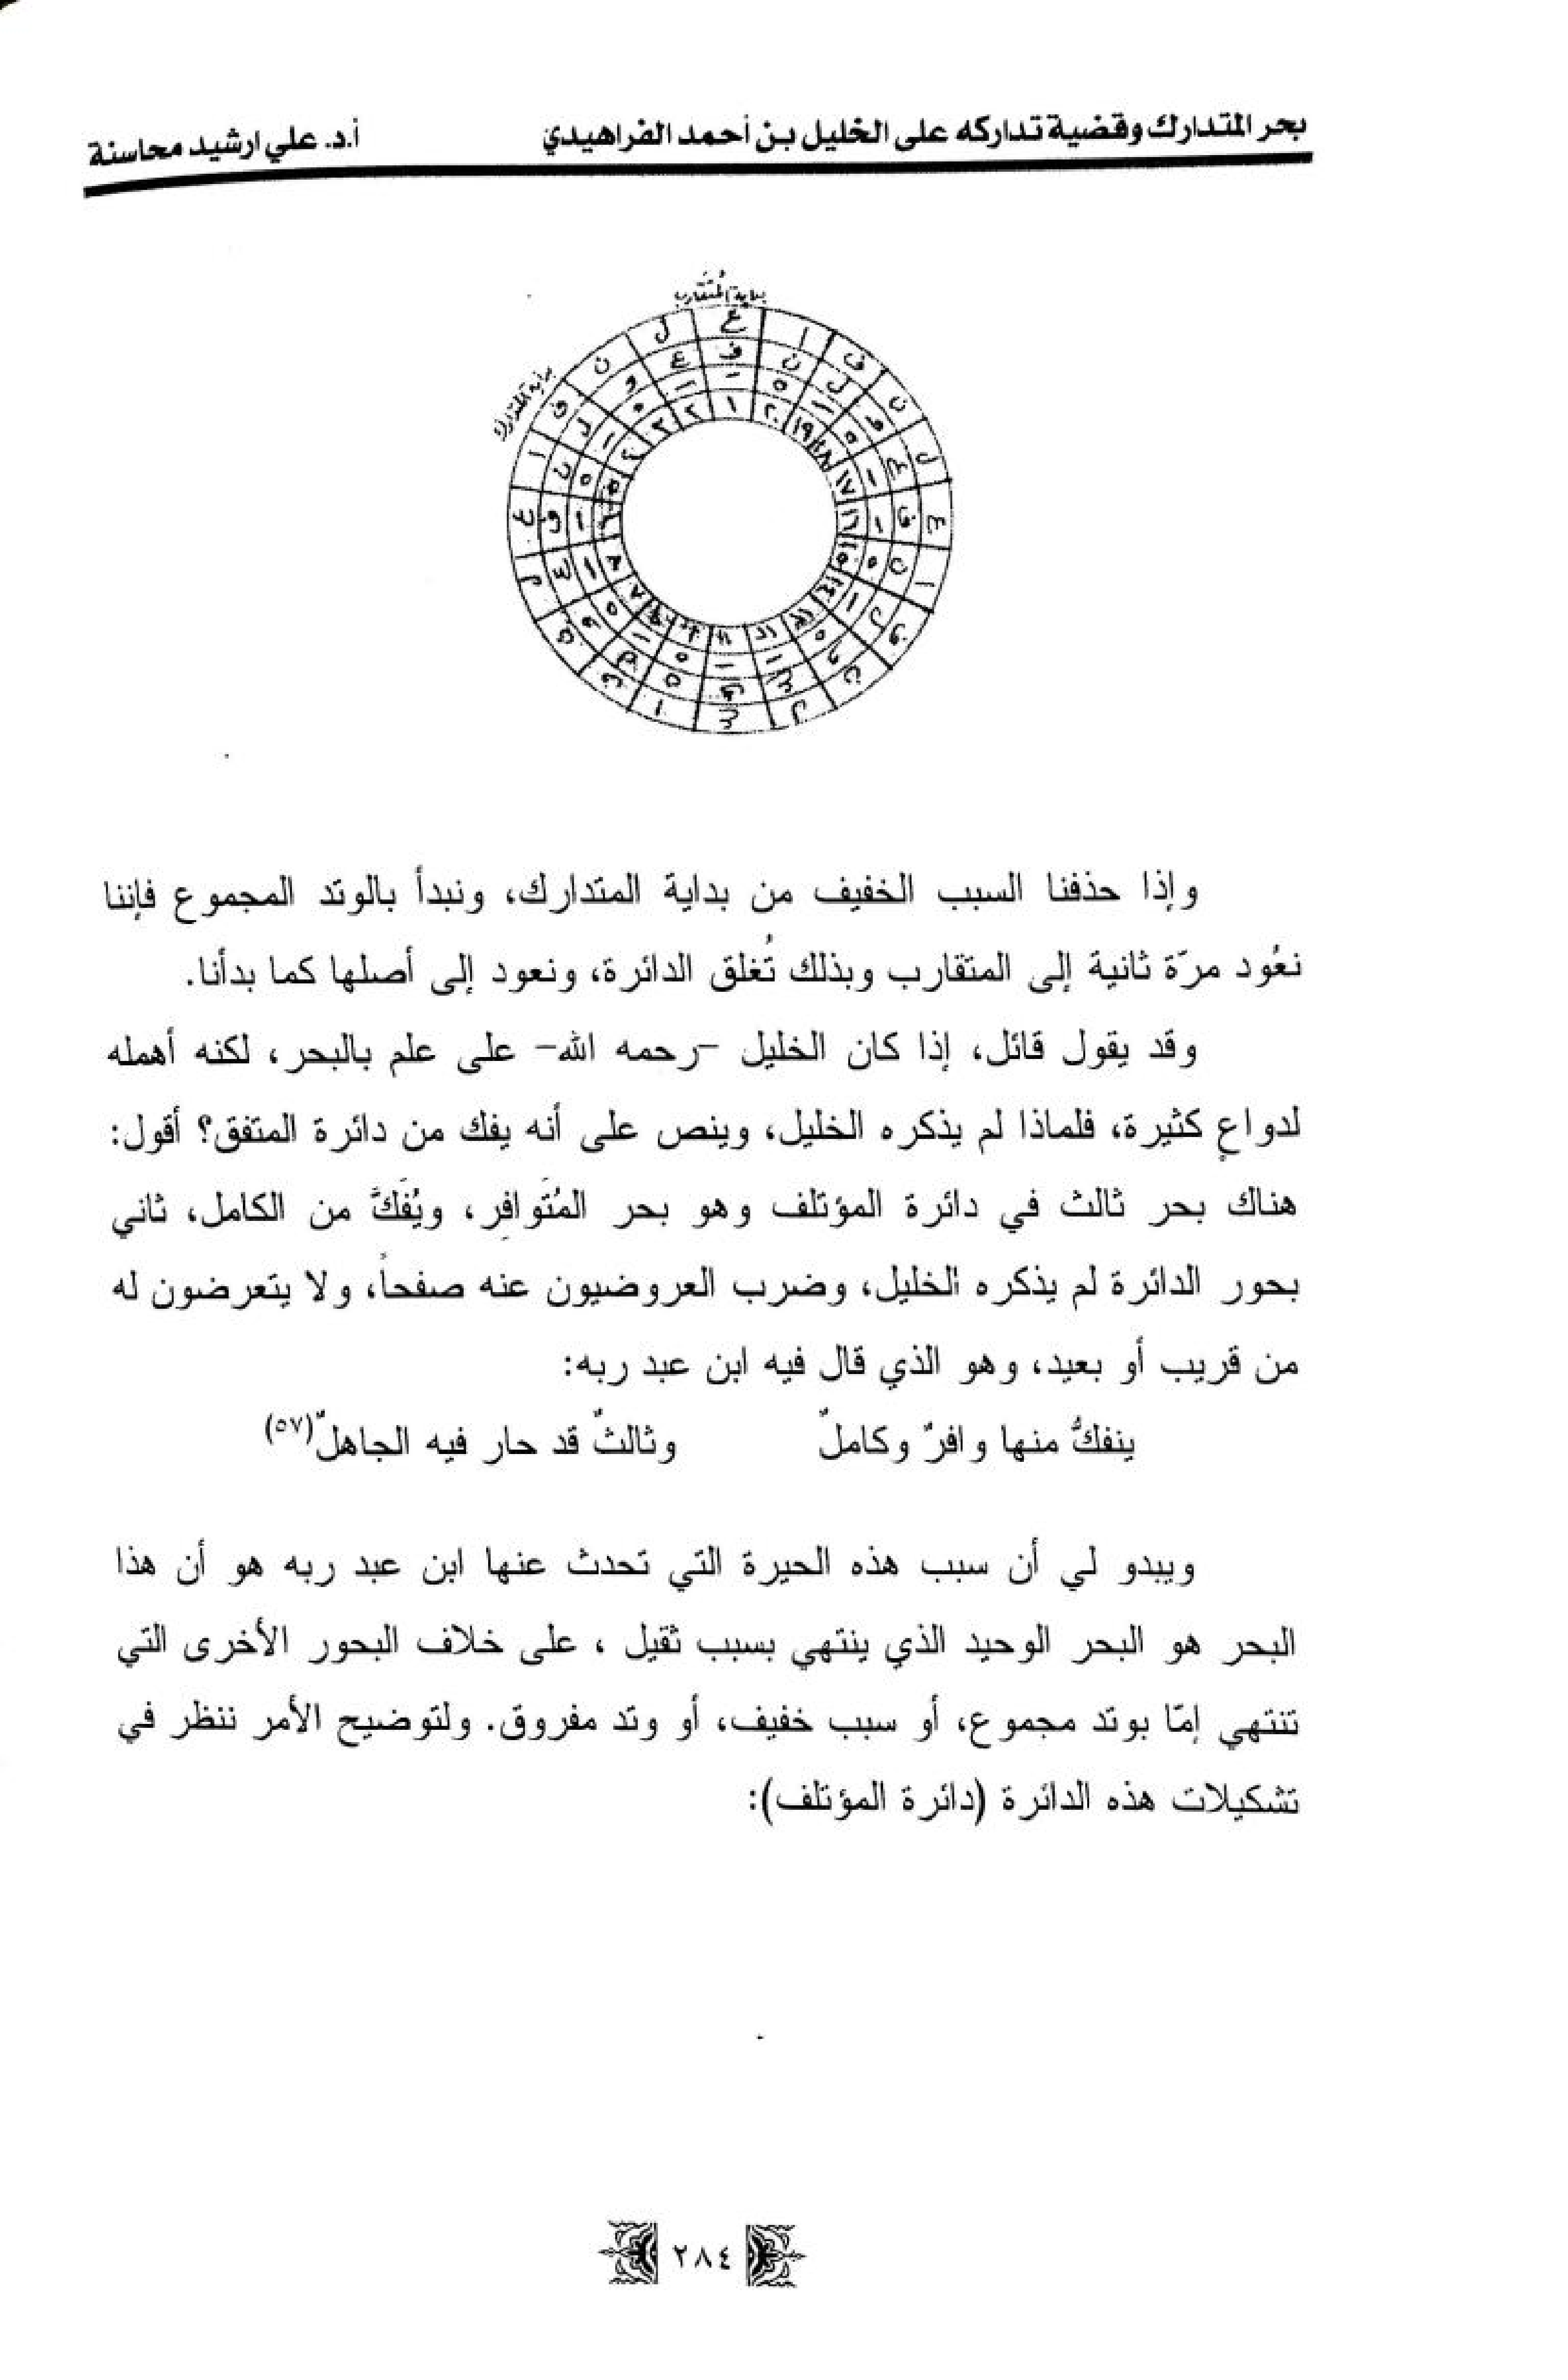 بحر المتدارك وقضية تداركه على الخليل بن أحمد الفراهيدي أ.د. علي ارشيد محاسنة
بداية المُتَقارب
بداية المتدارك
وإذا حذفنا السبب الخفيف من بداية المتدارك، ونبدأ بالوتد المجموع فإننا
نعُود مرّة ثانية إلى المتقارب وبذلك تُغلق الدائرة، ونعود إلى أصلها كما بدأنا.
وقد يقول قائل، إذا كان الخليل -رحمه الله- على علم بالبحر، لكنه أهمله
لدواعٍ كثيرة، فلماذا لم يذكره الخليل، وينص على أنه يفك من دائرة المتفق؟ أقول:
هناك بحر ثالث في دائرة المؤتلف وهو بحر المُتَوافِر، ويُفَكَّ من الكامل، ثاني
بحور الدائرة لم يذكره الخليل، وضرب العروضيون عنه صفحاً، ولا يتعرضون له
من قريب أو بعيد، وهو الذي قال فيه ابن عبد ربه:
ينفكُّ منها وافرٌ وكاملٌ وثالثٌ قد حار فيه الجاهلٌ(٥٧)
ويبدو لي أن سبب هذه الحيرة التي تحدث عنها ابن عبد ربه هو أن هذا
البحر هو البحر الوحيد الذي ينتهي بسبب ثقيل ، على خلاف البحور الأخرى التي
تنتهي إمّا بوتد مجموع، أو سبب خفيف، أو وتد مفروق. ولتوضيح الأمر ننظر في
تشكيلات هذه الدائرة (دائرة المؤتلف):
٢٨٤